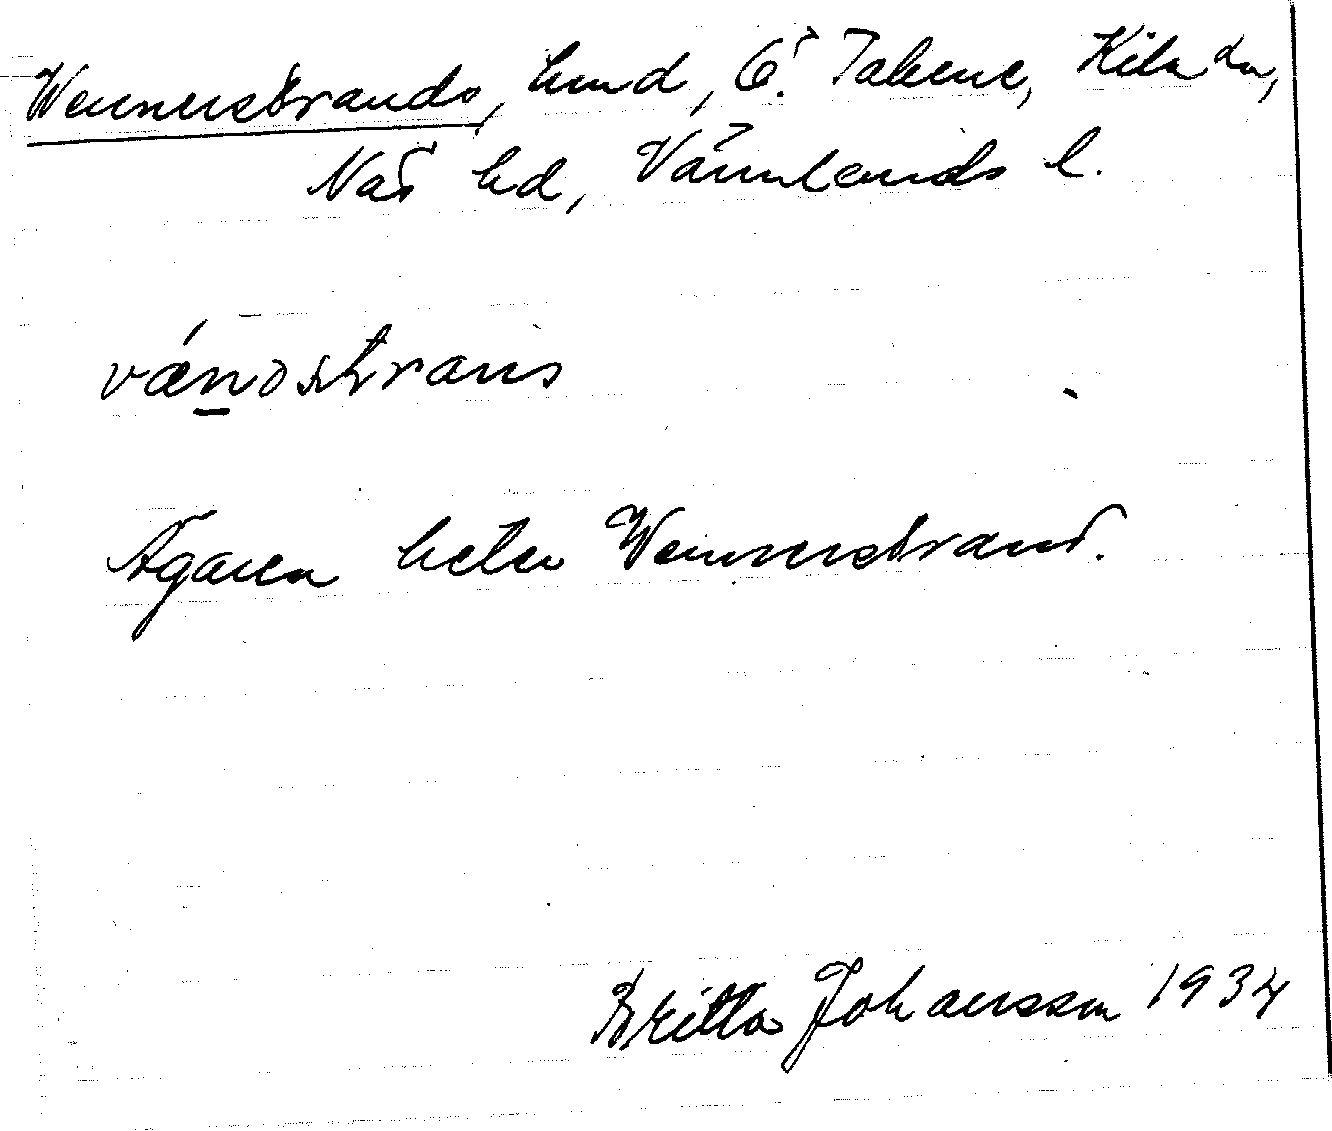 Wennerstrands, hmd, Ö. Takene, Kila sn,
Näs hd, Värmlands l.
vǽnostrans
Ägaren heter Wennerstrand.
Britta Johansson 1934